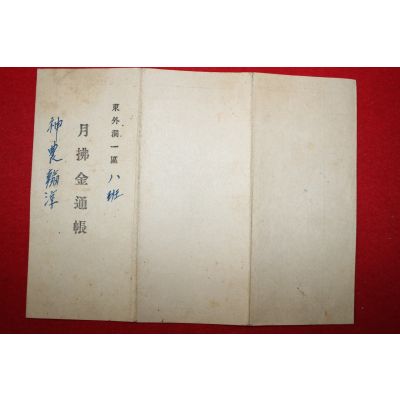 東外洞一區八班
月拂金通帳
神農